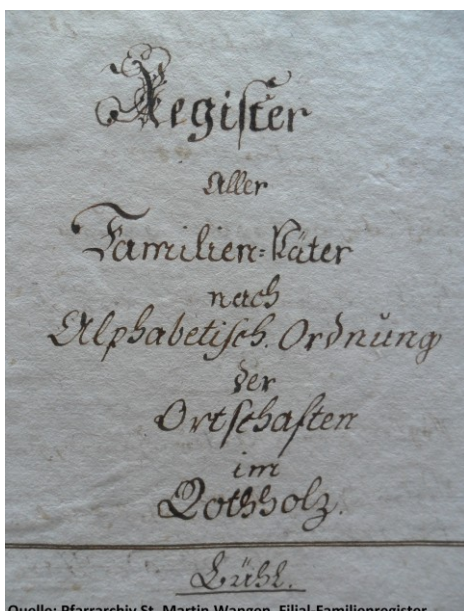 Register
Aller
Familien=Väter
nach
Alphabetisch. Ordnung
der
Ortschaften
im
Rothholz.
Bühl.
Quelle: Pfarrarchiv St. Martin Wangen, Filial-Familienregister